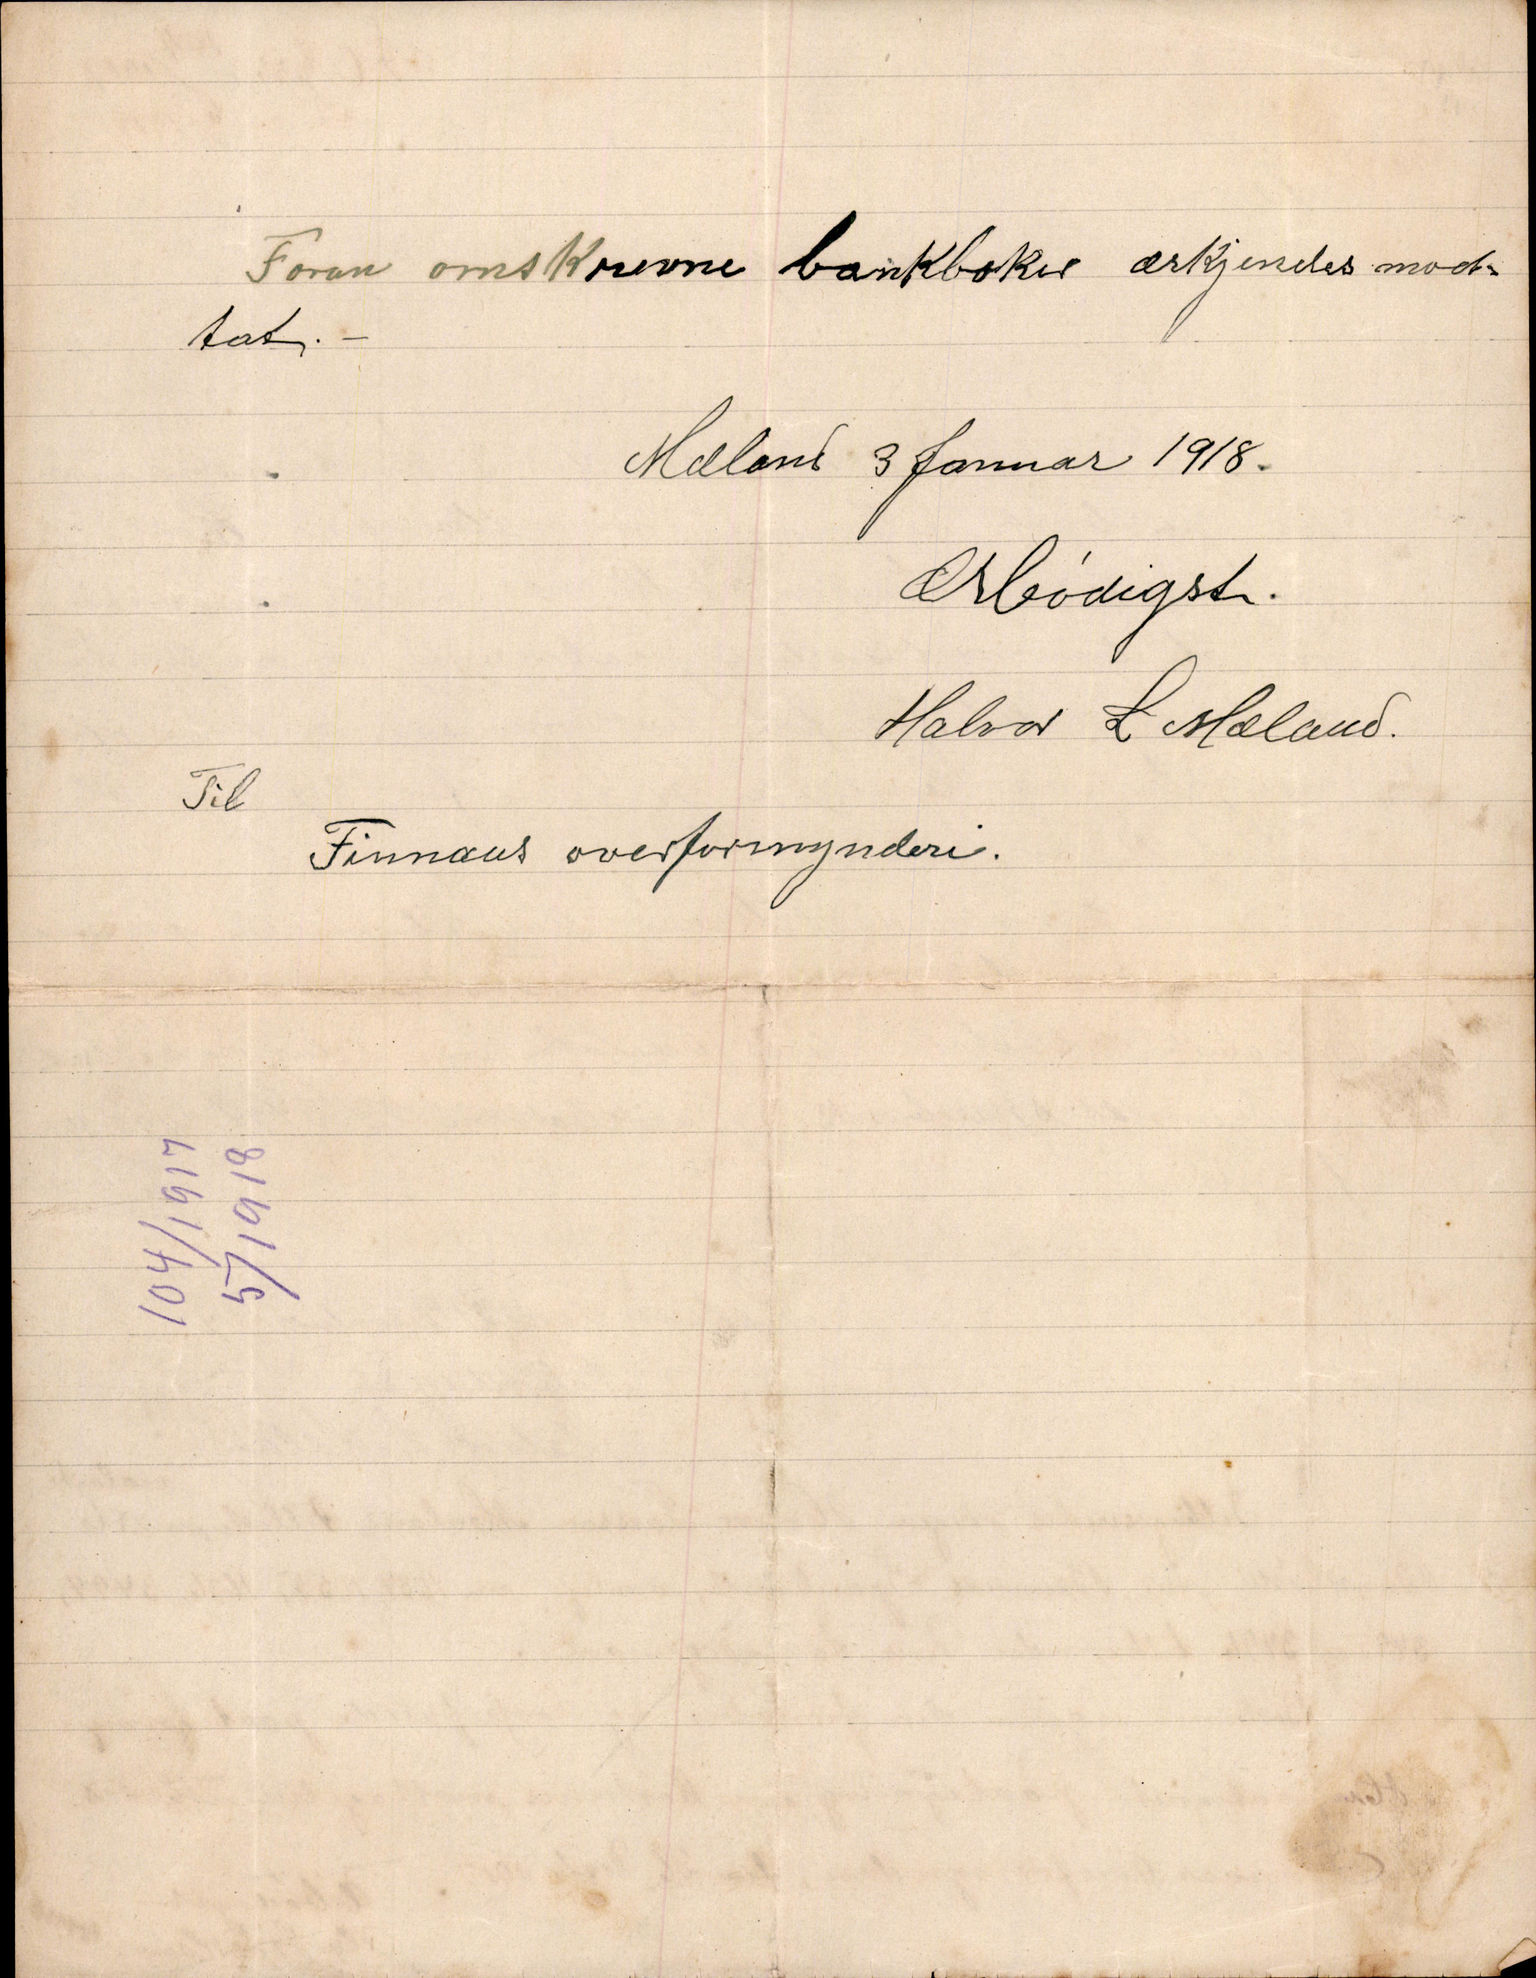 Foran omskrevne bankboker ærkjendes mod-
tat. –
Mæland 3 Januar 1918.
Ærbödigst.
Halvor L Mæland.
Til
Finnaas overformynderi.
104/1917
5/1918